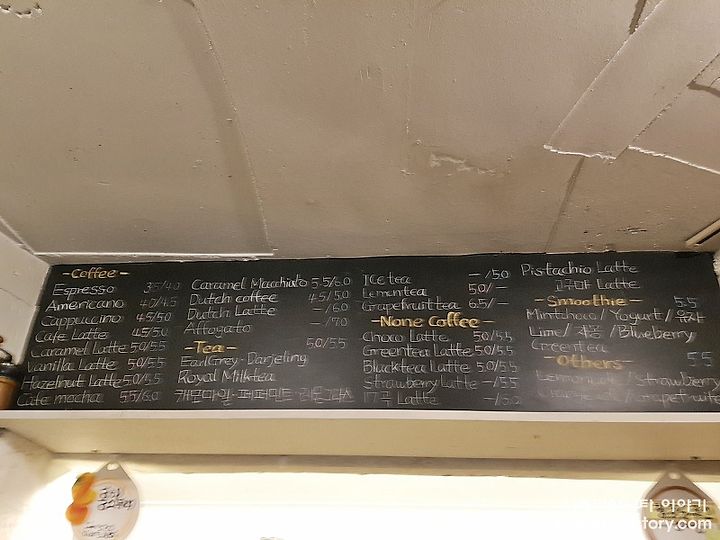 -Coffee-
Espresso 3.5/4.0
Americano 4.0/4.5
Cappuccino 4.5/5.0
Cafe Latte 4.5/5.0
Caramel Latte 5.0/5.5
Vanilla Latte 5.0/5.5
Hazelnut Latte 5.0/5.5
Cafe mocha 5.5/6.0
Caramel Macchiato 5.5/6.0
Dutch coffee 4.5/5.0
Dutch Latte -/6.0
Affogato -/7.0
-Tea- 5.0/5.5
EarlGrey·Darjeling
Royal Milktea
캐모마일·페퍼민트
Ice tea -/5.0
Lemontea 5.0/-
Grapefruittea 6.5/-
-None Coffee-
Choco Latte 5.0/5.5
Greentea Latte 5.0/5.5
Blacktea Latte 5.0/5.5
Strawberry Latte -/5.5
Latte
Pistachio Latte
고구마 Latte
-Smoothie- 5.5
Mintchoco/Yogurt/유자
Lime/ /Blueberry
Greentea
-Others- 5.5
/Strawberry
/Grapefruit
이야기
story.com